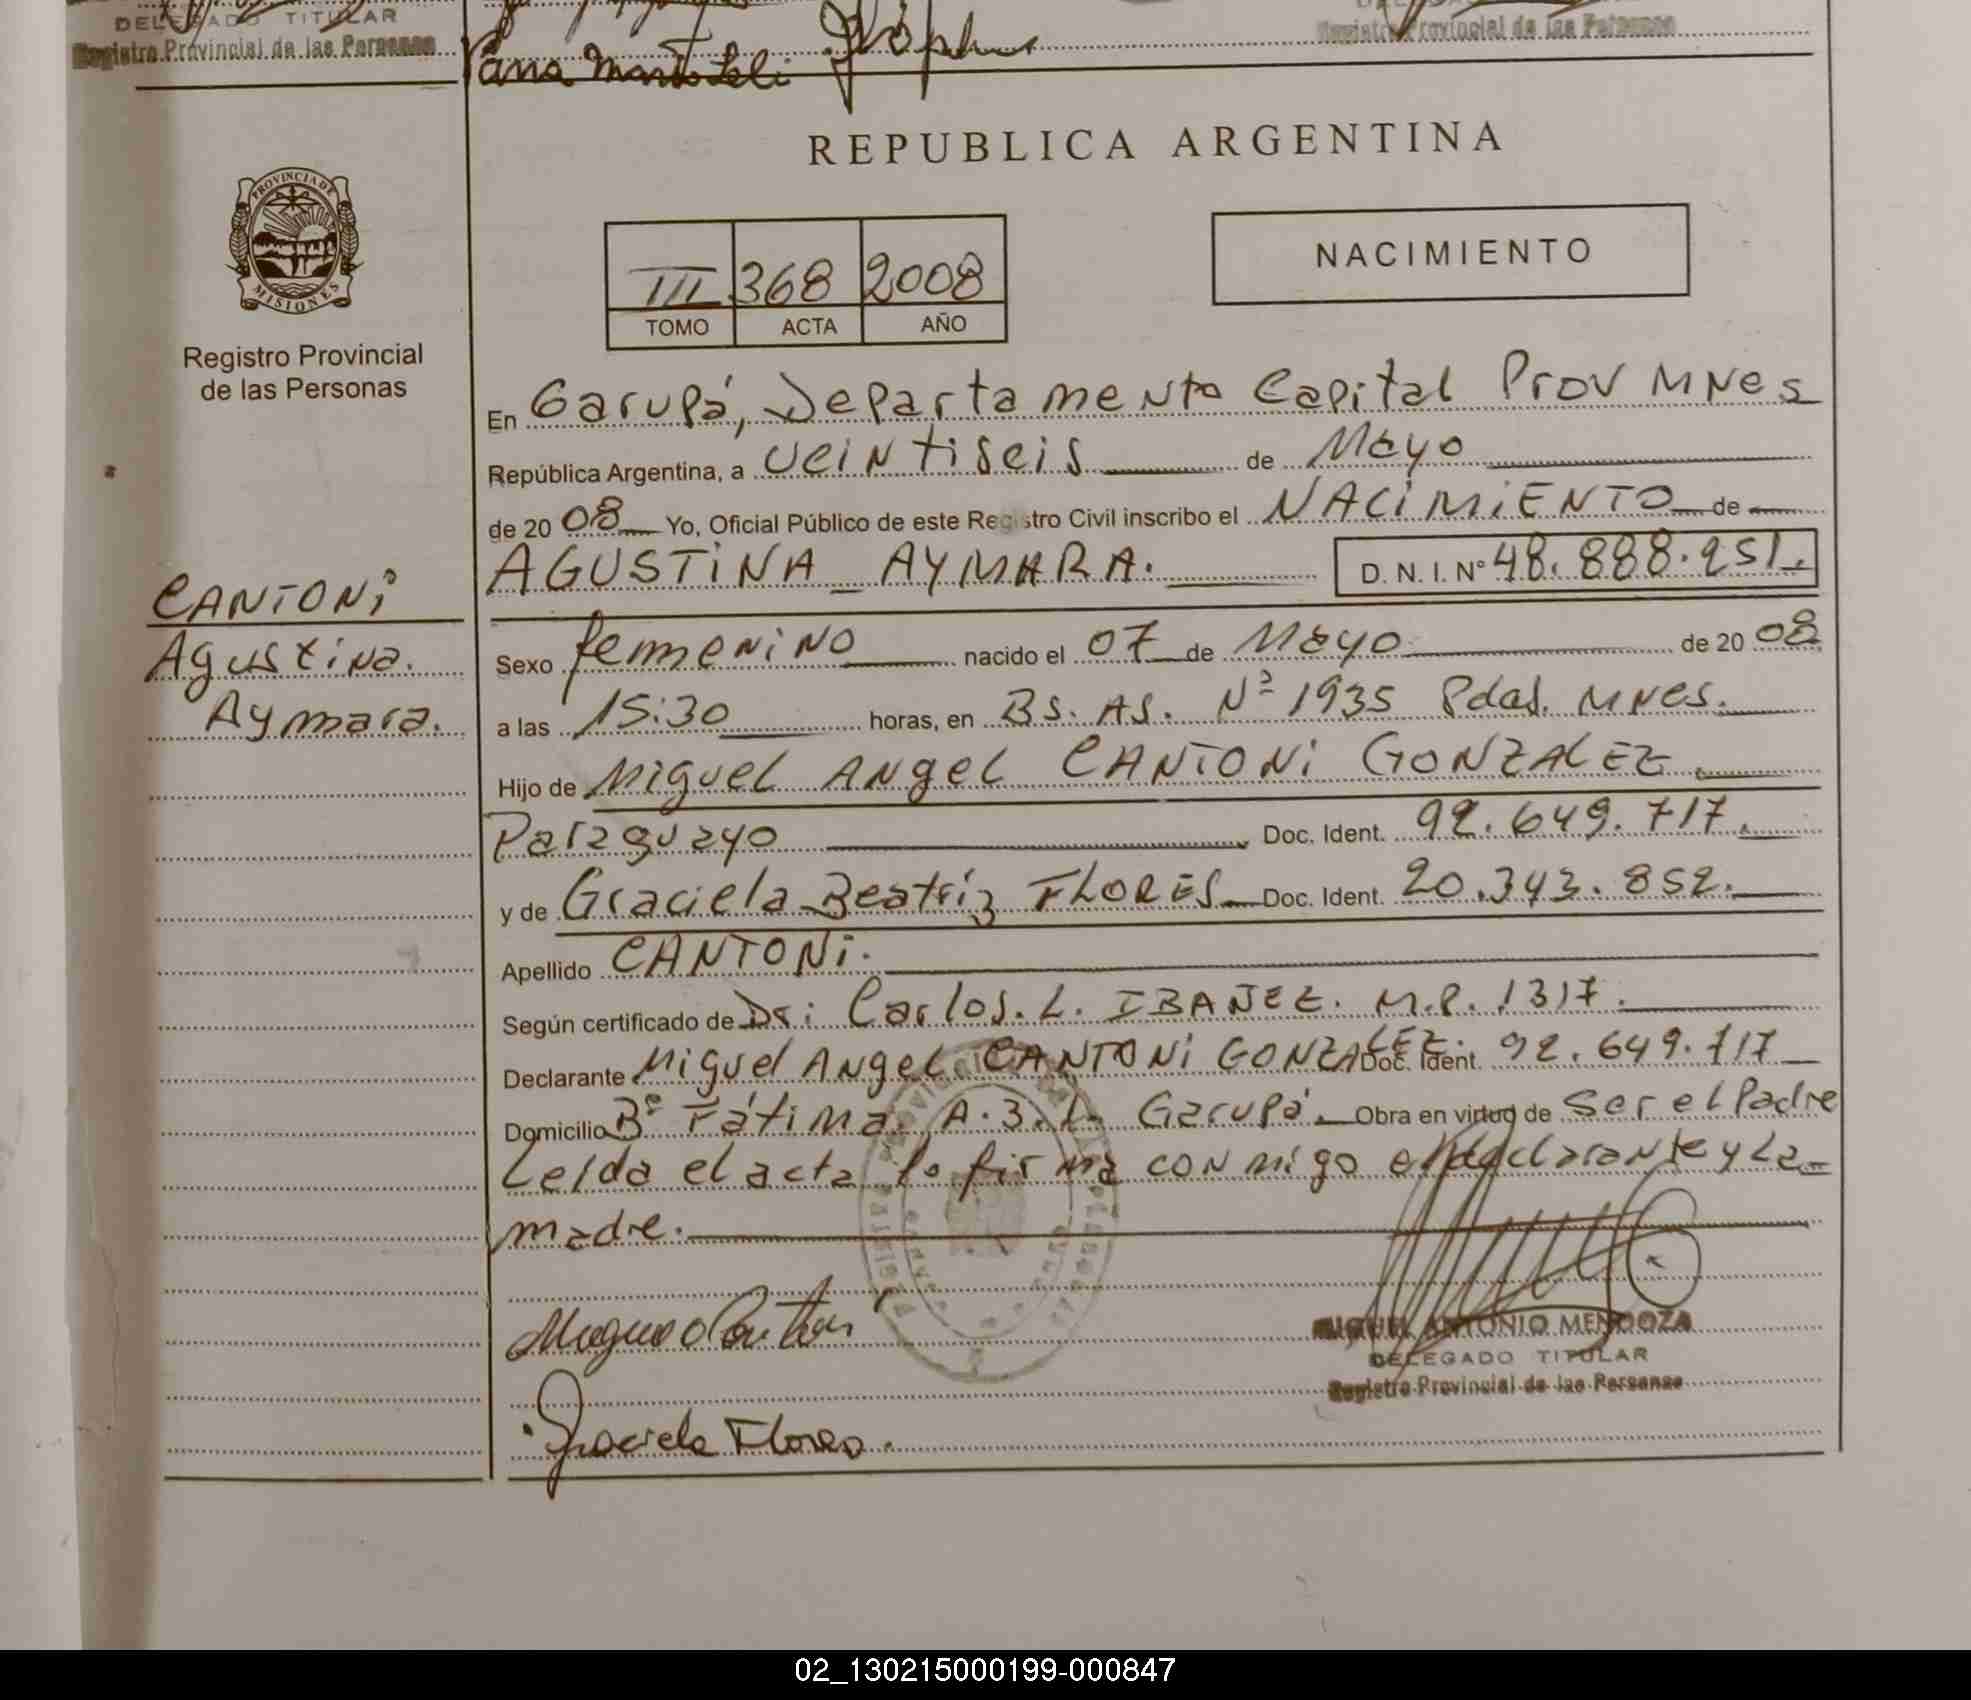 DELEGADO TITULAR
Registro Provincial de las Personas
Registro Provincial de las Personas
REPUBLICA ARGENTINA
PROVINCIA DE
MISIONES
Registro Provincial
de las Personas
III 368 2008
TOMO ACTA AÑO
NACIMIENTO
En Garupá, Departamento Capital Prov MNes
República Argentina, a veintiseis de Mayo
de 2008 Yo, Oficial Público de este Registro Civil inscribo el NACIMIENTO de
AGUSTINA AYMARA. D. N. I. Nº 48.888.251.
CANTONI
Agustina.
Aymara.
Sexo femenino nacido el 07 de Mayo de 2008
a las 15:30 horas, en Bs. As. Nº 1935 Pdas. MNes.
Hijo de Miguel Angel CANTONI GONZALEZ.
Paraguayo Doc. Ident. 92.649.717.
y de Graciela Beatriz FLORES Doc. Ident. 20.343.852.
Apellido CANTONI.
Según certificado de Dr: Carlos. L. IBAÑEZ. M.P. 1317.
Declarante Miguel Angel CANTONI GONZALEZ. Doc. Ident. 92.649.717
Domicilio Bº Fátima. A.3.L. Garupá. Obra en virtud de ser el Padre
Leida el acta lo firma conmigo el declarante y la
madre.
Graciela Flores.
MIGUEL ANTONIO MENDOZA
DELEGADO TITULAR
Registro Provincial de las Personas
02_130215000199-000847